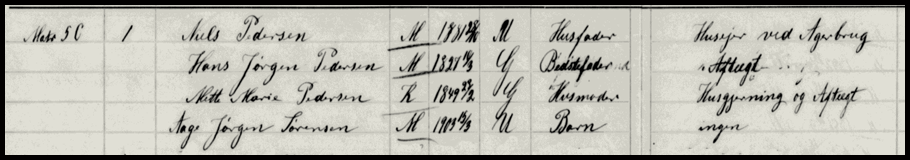 Matr 5 C 1 Niels Pedersen M 1881 M Husfader Husejer ved Agerbrug
Hans Jørgen Pedersen M 1821 G Bedstefader Aftægt
Mette Marie Pedersen K 1849 G Husmoder Husgjerning og Aftægt
Aage Jørgen Sørensen M 1903 U Barn ingen